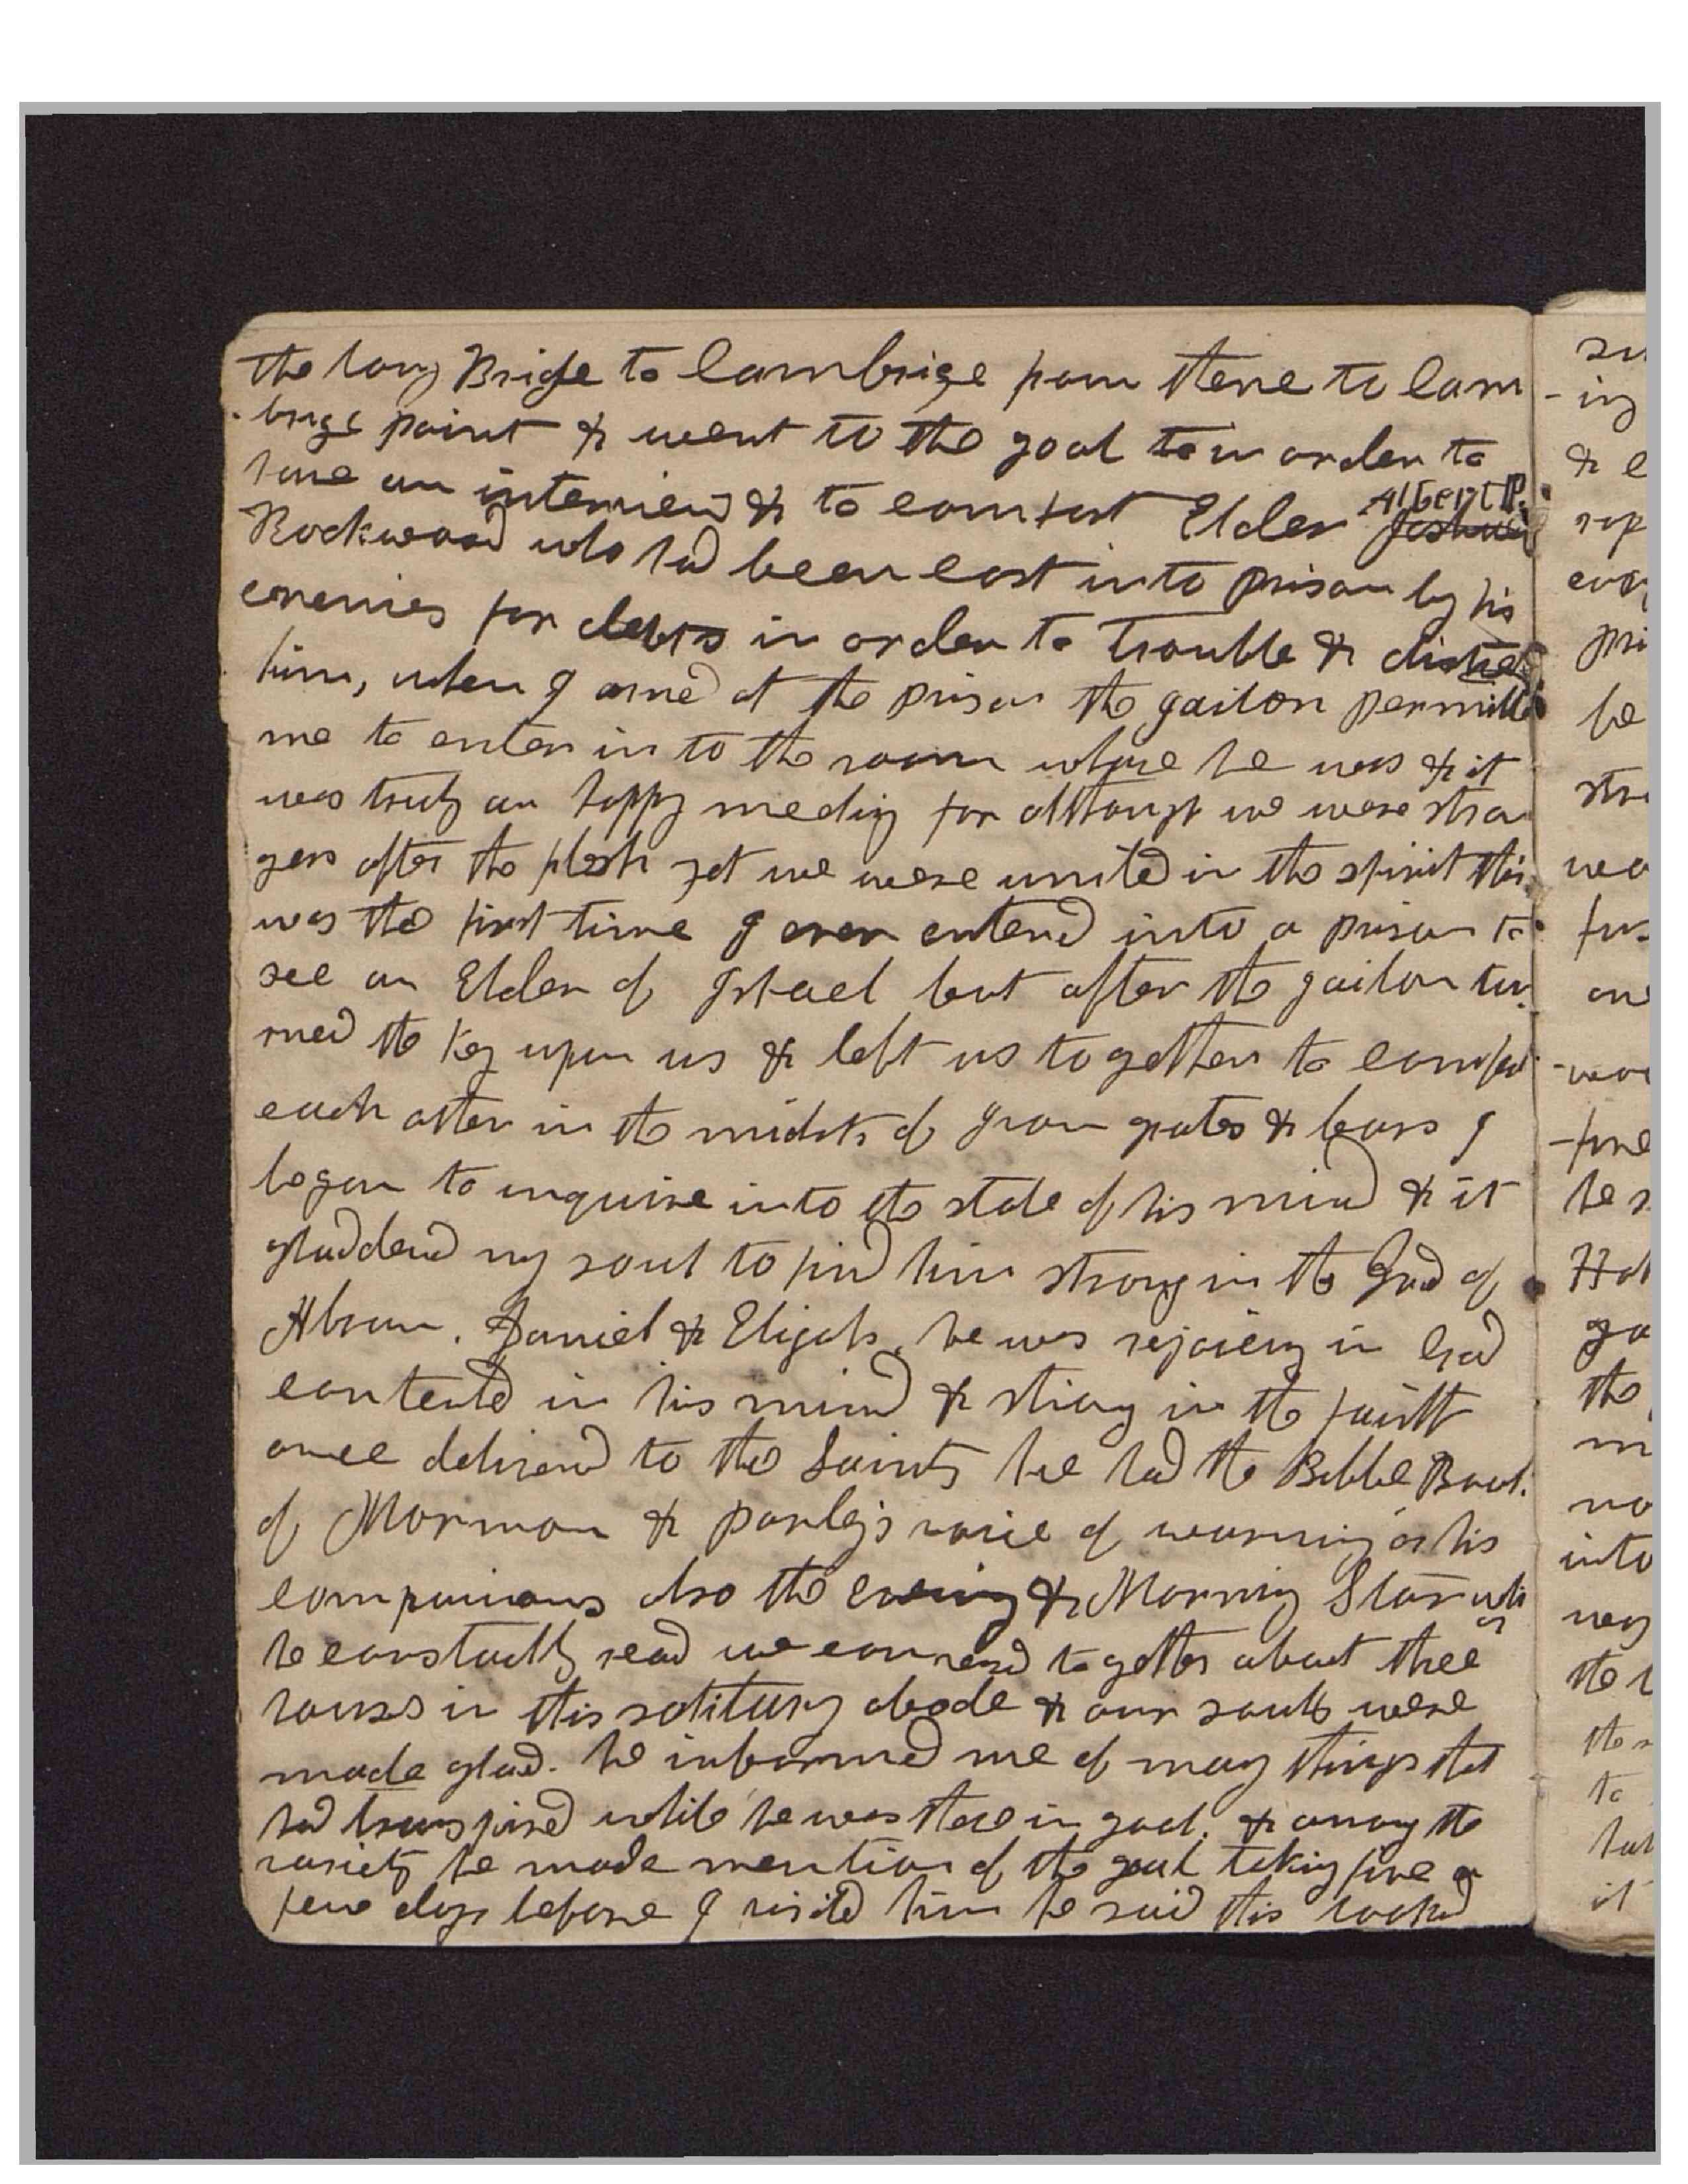 the long Bridge to Cambrige from there to Cam
brige point & went to the goal to in order to
have an interview & to comfort Elder Joshua Albert P.
Rockwood who had been cast into prison by his
enemies for debts in order to trouble & distress
him, when I arived at the prison the gailor permitted
me to enter in to the room whare he was & it
was truly an happy meeting for although we were stran
gers after the flesh yet we were united in the spirit this
was the first time I ever entered into a prison to
see an Elder of Israel but after the gailor tur
rned the key upon us & left us together to comfort
each other in the midsts of Iron grates & bars I
began to inquire into the state of his mind & it
gladdend my soul to find him strong in the God of
Abram. Daniel & Elijah. he was rejoicing in God
contented in his mind & strong in the faith
once delivered to the Saints he had the Bibble Book
of Mormon & parley's voice of warning as his
companions also the evening & Morning Star which
he constantly read we conversed together about three
hours in this solitary abode & our souls were
made glad. he informed me of many things that
had transpired while he was there in goal. & among the
variety he mode mention of the goal taking fire a
few days before I visited him he said this looked
su
-ing
& e
rep
eve
pri
be
stre
wo
fus
and
-wor
-fire
he s
Hol
go
the
m
no
into
very
the
the
to
hat
it